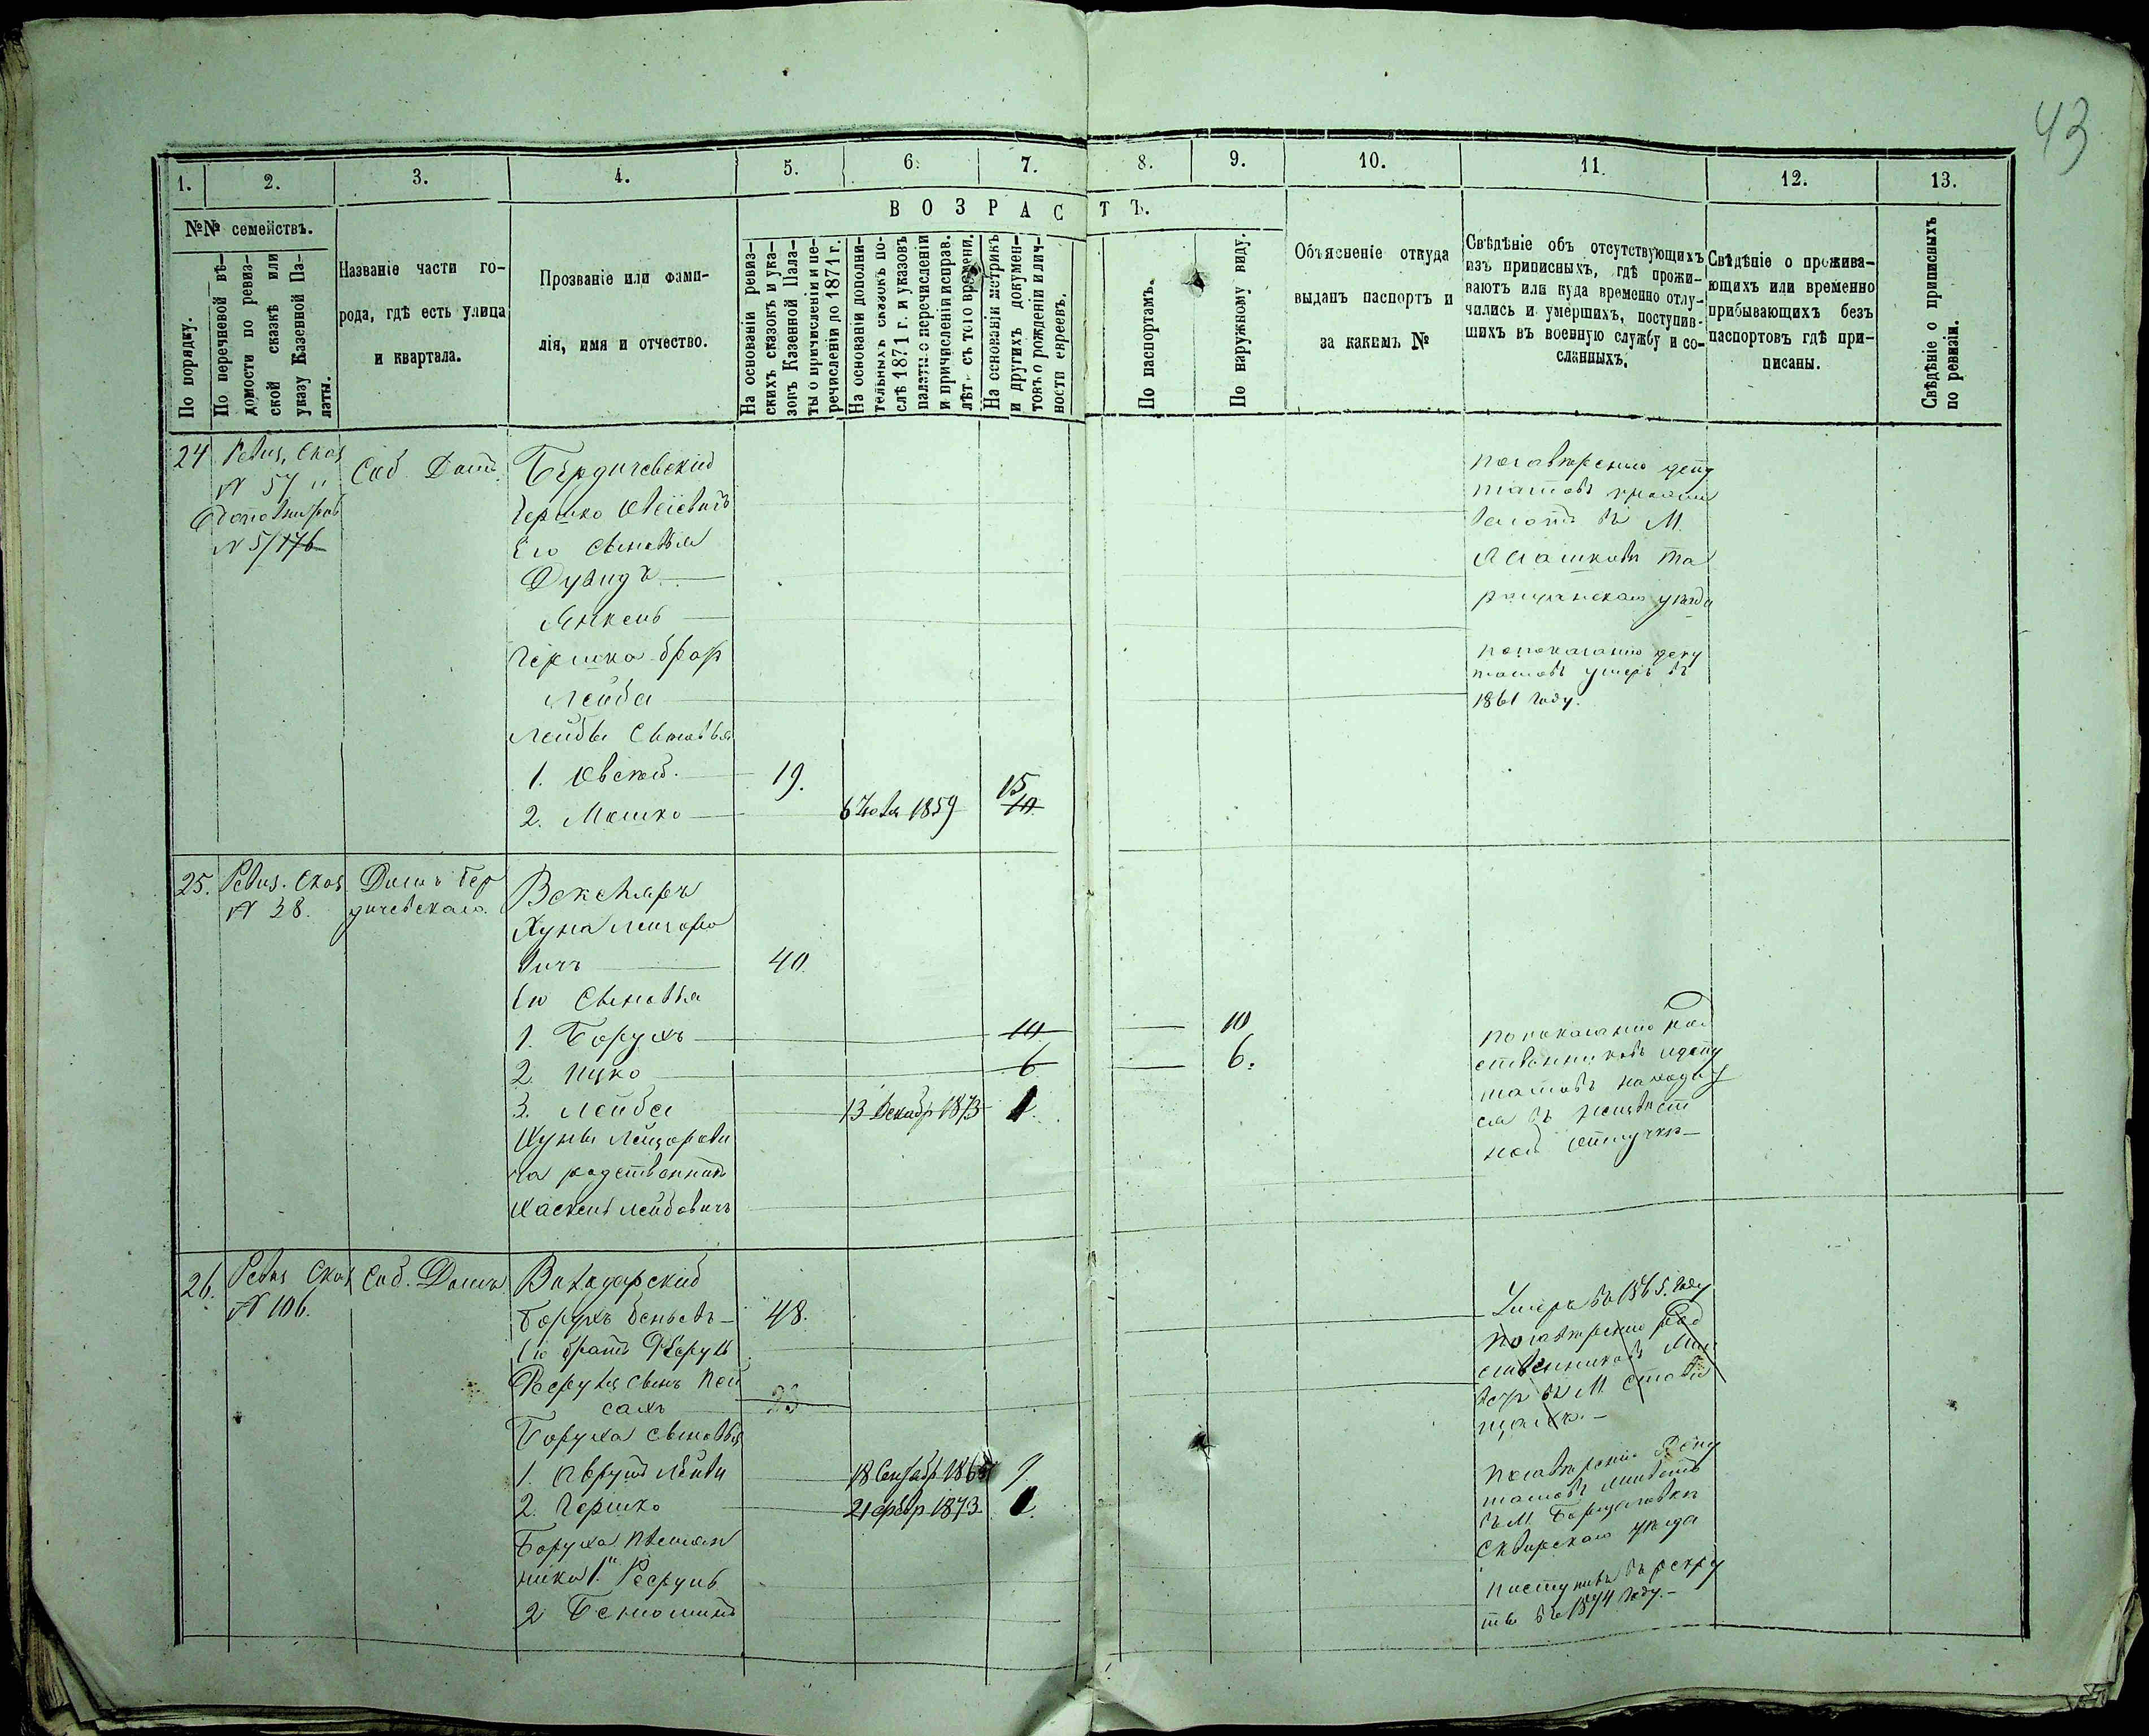 43
1. 2. 3. 4. 5. 6. 7. 8. 9. 10. 11. 12. 13.
№№ семействъ.
По порядку.
По перечневой вѣ-
домости по ревиз-
ской сказкѣ или
указу Казенной Па-
латы.
Названіе части го-
рода, гдѣ есть улица
и квартала.
Прозваніе или фами-
лія, имя и отчество.
ВОЗРАСТЪ.
На основаніи ревиз-
скихъ сказокъ и ука-
зовъ Казенной Пала-
ты о причисленіи и пе-
речисленіи до 1871 г.
На основаніи дополни-
тельныхъ сказокъ по-
слѣ 1871 г. и указовъ
палаты о перечисленіи
и причисленіи исправ.
лѣт. съ того времени.
На основаніи метрикъ
и другихъ докумен-
товъ о рожденіи и лич-
ности евреевъ.
По паспортамъ.
По наружному виду.
Объясненіе откуда
выданъ паспортъ и
за какимъ №
Свѣдѣніе объ отсутствующихъ
изъ приписныхъ, гдѣ прожи-
ваютъ или куда временно отлу-
чились и умершихъ, поступив-
шихъ въ военную службу и со-
сланныхъ.
Свѣдѣніе о прожива-
ющихъ или временно
прибывающихъ безъ
паспортовъ гдѣ при-
писаны.
Свѣдѣніе о приписныхъ
по ревизіи.
24 Ревиз. Сказ
№ 57
№ 5/176
Соб. Домъ
Бердичевскій
Гершко
Его сыновья
Дувидъ
Янкель
Гершка братъ
Лейба
Лейбы сыновья
1. Овсей. 19.
2. Мошко 6 Іюля 1859 15 10
по завѣренію депу
татовъ прожи
ваютъ въ М.
Та
ращанскаго уѣзда
по показанію депу
татовъ умеръ въ
1861 году.
25. Ревиз. Сказ
№ 38.
Домъ Бер
дичевскаго.
Векслеръ
Хуна Лейзоро
вичъ 40.
Его сыновья
1. Борухъ 10 10
2. Ицко 6 6.
3. Лейба 13 Декабр 1873 1.
Хуны Лейзорови
ча родственникъ
Хаскель Лейбовичъ
по показанію род
ственниковъ и депу
татовъ находит
ся въ неизвѣст
ной отлучкѣ
26. Ревиз Сказ
№ 106.
Соб. Домъ
Богударскій
Борухъ 48.
Его братъ
сынъ Пей
сахъ 23
Боруха сыновья
1. Аврумъ 18 Сентябр 9
2. Гершко 21 Февр 1873 1.
Боруха племян
ники 1.
2 Беньоминъ
Умеръ въ 1865. году
по завѣренію род
ственниковъ
въ М. Стави
щахъ.
по завѣренію Депу
татовъ живетъ
въ М.
Сквирскаго уѣзда
поступилъ въ рекру
ты въ 1874 году.